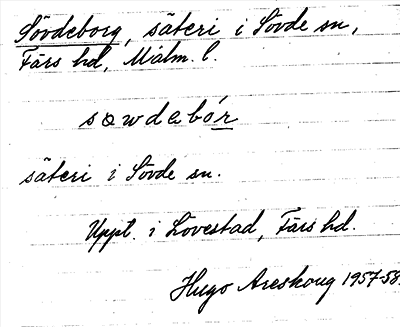 Sövdeborg, säteri i Sövde sn,
Färs hd, Malm. l.
sawdabór
säteri i Sövde sn.
Uppt. i Lövestad, Färs hd.
Hugo Areskoug 1957-58.